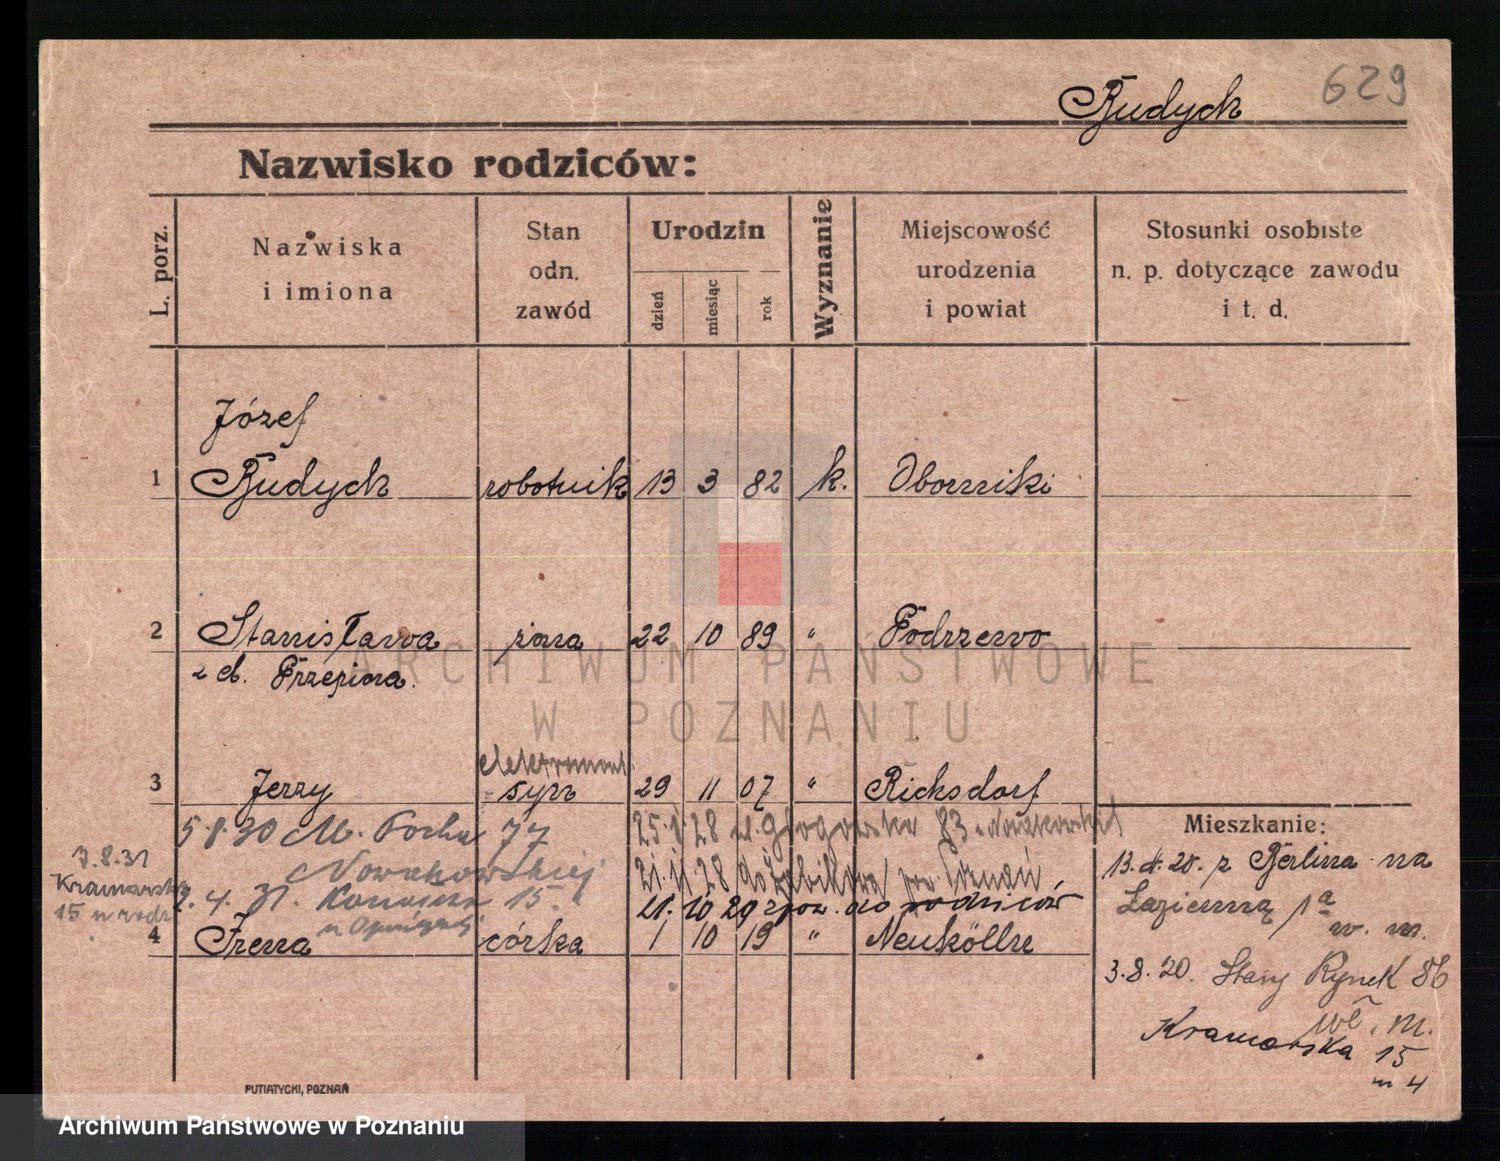 Budych 629
Nazwisko rodziców:
L. porz.
Nazwiska
i imiona
Stan
odn.
zawód
Urodzin
dzień
miesiąc
rok
Wyznanie
Miejscowość
urodzenia
i powiat
Stosunki osobiste
n. p. dotyczące zawodu
i t. d.
Józef
1 Budych robotnik 13 3 82 k. Oborniki
2 Stanisława żona 22 10 89 " Podrzewo
z d. Przepiora.
elektromont.
3 Jerzy syn 29 11 07 " Ricksdorf
5.8.30 M. Focha 77
25. 28 ul. Głogowska 83
Nowakowskiej
21. 28 do Poznań
7.8.31
Kramarska
15 u rodz.
7.4.31. 15.
21. 10 29 spow. do rodziców
4 Irena córka 1 10 19 " Neukölln
Mieszkanie:
13.4.20. z Berlina na
Łazienną 1a
w. m.
3.8.20. Stary Rynek 86
w. m.
Kramarska 15
m 4
PUTIATYCKI, POZNAŃ
ARCHIWUM PAŃSTWOWE
W POZNANIU
Archiwum Państwowe w Poznaniu